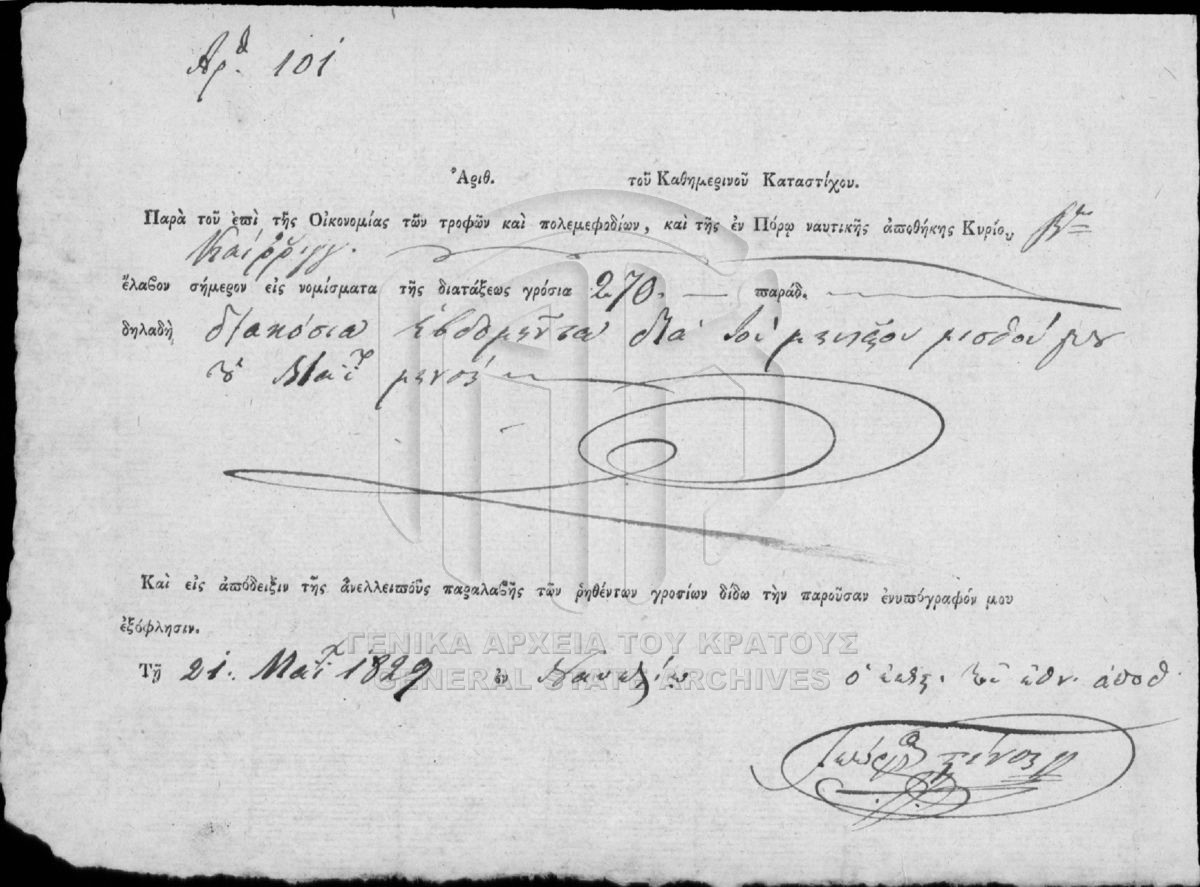 Αρ.θ 101
Ἀριθ. τοῦ Καθημερινοῦ Καταστίχου.
Παρὰ τοῦ ἐπὶ τῆς Οἰκονομίας τῶν τροφῶν καὶ πολεμεφοδίων, καὶ τῆς ἐν Πόρῳ ναυτικῆς ἀποθήκης Κυρίου
Καίρριγγ.
ἔλαβον σήμερον εἰς νομίσματα τῆς διατάξεως γρόσια 270. — παράδ.
δηλαδὴ διακόσια ἑβδομῆντα διὰ τοῦ μισθοῦ μου
Μαΐου
Καὶ εἰς ἀπόδειξιν τῆς ἀνελλειποῦς παραλαβῆς τῶν ῥηθέντων γροσίων δίδω τὴν παροῦσαν ἐνυπόγραφόν μου
ἐξόφλησιν.
ΓΕΝΙΚΑ ΑΡΧΕΙΑ ΤΟΥ ΚΡΑΤΟΥΣ
Τῇ 21. Μαΐου 1829 ἐν Ναυπλίῳ ὁ
GENERAL STATE ARCHIVES